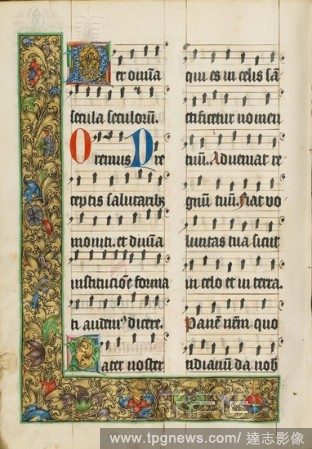 Per omnia
secula seculorū.
Oremus Pre
ceptis salutarib
moniti. et diuīa
institucōe forma
ti audemꝰ dicere.
Pater noster
qui es in celis sā
ctificetur nomen
tuū. Adueniat re
gnū tuū. Fiat vo
luntas tua sicut
in celo et in terra.
Panē nrm̄ quo
tidianū da nob
www.tpgnews.com/ 達志影像